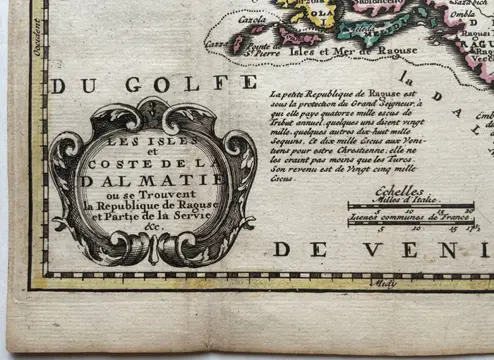 Cazola
Cazza
Pointe de
St. Pierre
Isles et Mer de Raouse
MELEDA
Sabioncello
Ombla
Occident
la DAL
DU GOLFE
La petite Republique de Raouse est
sous la protection du Grand Seigneur, à
qui elle paye quatorze mille escus de
Tribut annuel, quelques uns disent vingt
mille, quelques autres dix-huit mille
Sequins. Et dix mille Escus aux Veni-
tiens pour estre Chrestienne; elle ne
les craint pas moins que les Turcs.
Son revenu est de Vingt cinq mille
Escus.
LES ISLES
et
COSTE DE LA
DALMATIE
ou se Trouvent
la Republique de Raouse
et Partie de la Servie
&c.
Echelles
Milles d'Italie.
5 10 15 20
Lieues communes de France.
5 10 15 17½
DE VENI
Midy